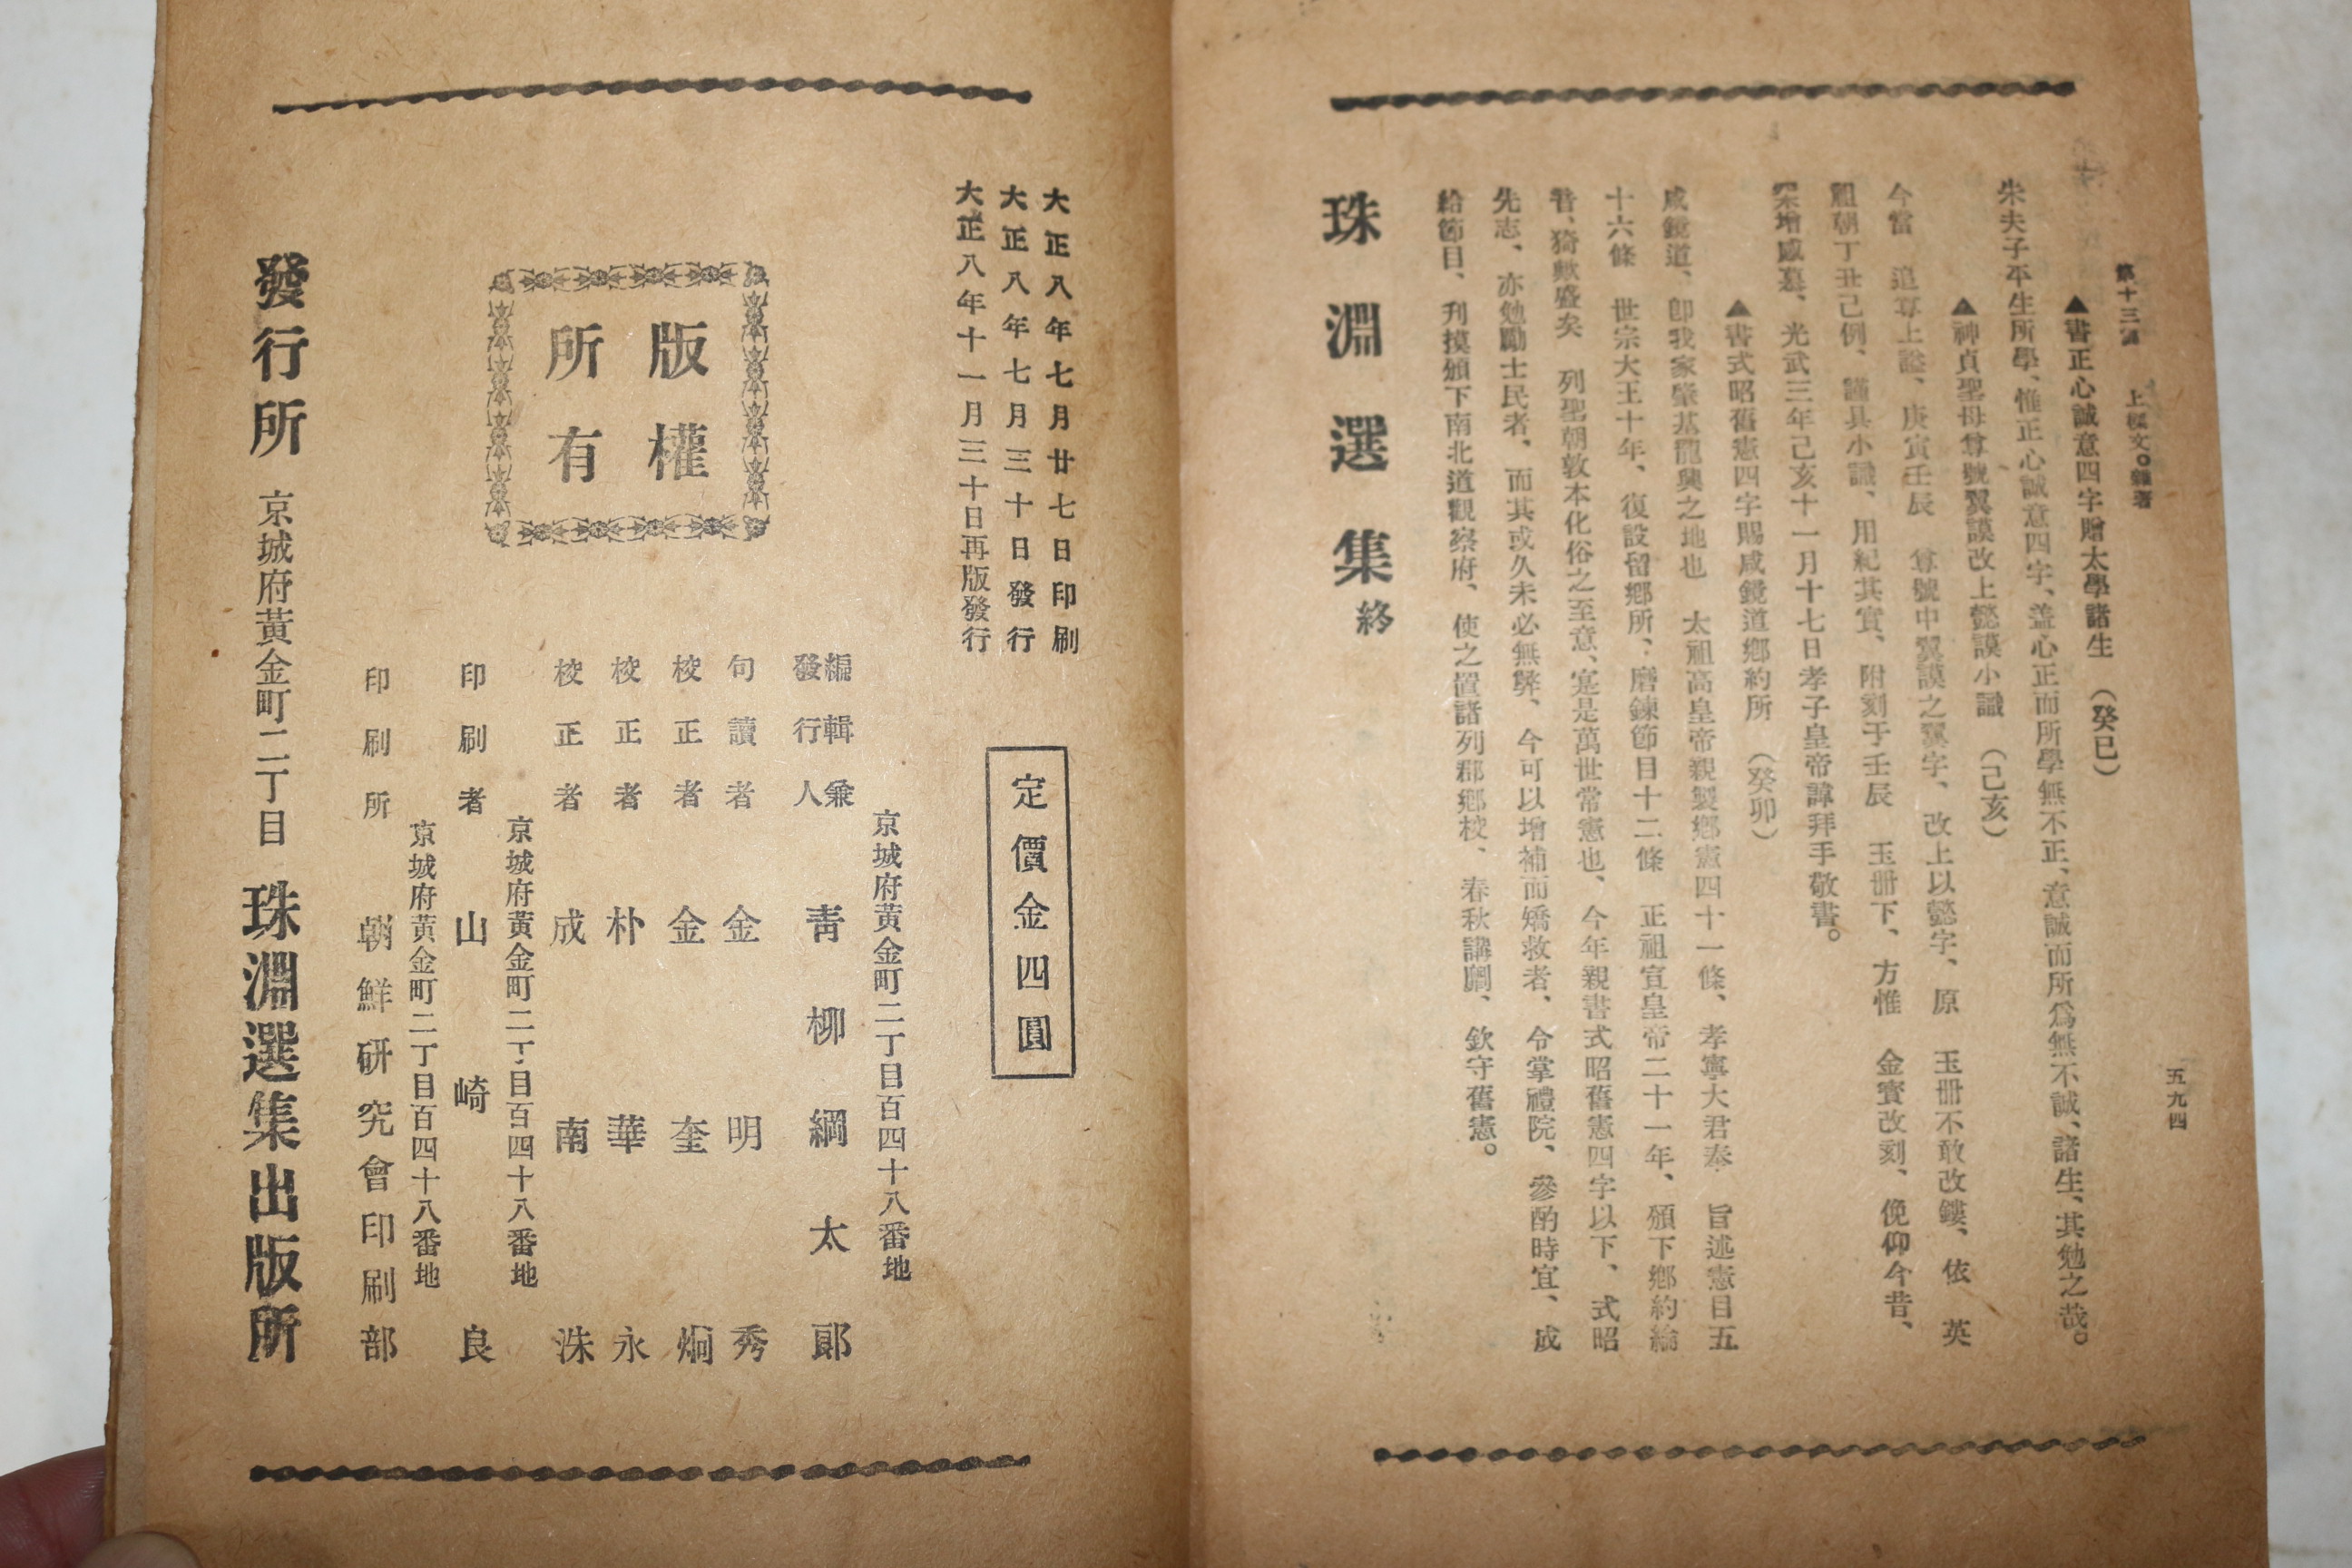 第十三編 上樑文○雜著 五九四
▲書正心誠意四字贈太學諸生 (癸巳)
朱夫子平生所學、惟正心誠意四字、盖心正而所學無不正、意誠而所爲無不誠、諸生、其勉之哉。
▲神貞聖母尊號翼謨改上懿謨小識 (己亥)
今當 追尊上諡、庚寅壬辰 尊號中翼謨之翼字、改上以懿字、原 玉冊不敢改鏤、依 英
祖朝丁丑己例、謹具小識、用紀其實、附刻于壬辰 玉冊下、方惟 金寶改刻、俛仰今昔、
深增感慕、光武三年己亥十一月十七日孝子皇帝諱拜手敬書。
▲書式昭舊憲四字賜咸鏡道鄕約所 (癸卯)
咸鏡道、卽我家肇基龍興之地也 太祖高皇帝親製鄕憲四十一條、孝寧大君奉 旨述憲目五
十六條 世宗大王十年、復設留鄕所、磨鍊節目十二條 正祖宣皇帝二十一年、頒下鄕約綸
音、猗歟盛矣 列聖朝敦本化俗之至意、寔是萬世常憲也、今年親書式昭舊憲四字以下、式昭
先志、亦勉勵士民者、而其或久未必無弊、今可以增補而矯救者、令掌禮院、參酌時宜、成
給節目、刋摸頒下南北道觀察府、使之置諸列郡鄕校、春秋講劘、欽守舊憲。
珠淵選集終
大正八年七月廿七日印刷
大正八年七月三十日發行
大正八年十一月三十日再版發行
定價金四圓
版權
所有
京城府黃金町二丁目百四十八番地
編輯兼
發行人 靑柳綱太郞
句讀者 金明秀
校正者 金奎炯
校正者 朴華永
校正者 成南洙
京城府黃金町二丁目百四十八番地
印刷者 山崎良
京城府黃金町二丁目百四十八番地
印刷所 朝鮮硏究會印刷部
發行所 京城府黃金町二丁目 珠淵選集出版所